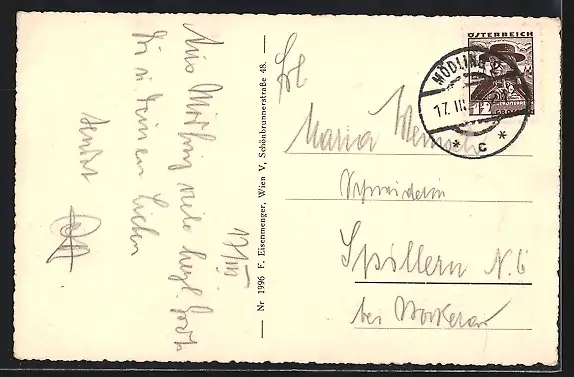 Aus Mödling viele herzl. Grüße
Dir u. Deinen Lieben
sendet
17/III.
Nr 1996 F. Eisenmenger, Wien V, Schönbrunnerstraße 48.
ÖSTERREICH
MÖDLING 2
17. III.
* c *
12
Frl.
Maria
Schneiderin
Spillern N.Ö
bei Stockerau